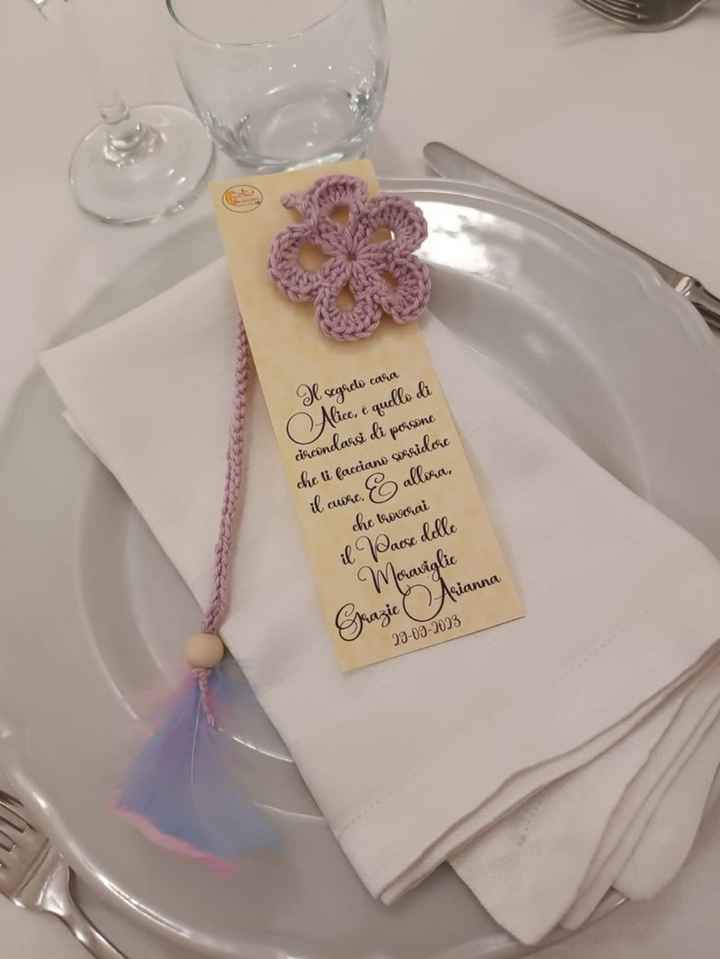 Il segreto cara
Alice, è quello di
circondarsi di persone
che ti facciano sorridere
il cuore. E allora,
che troverai
il Paese delle
Meraviglie
Grazie Arianna
29-09-2023